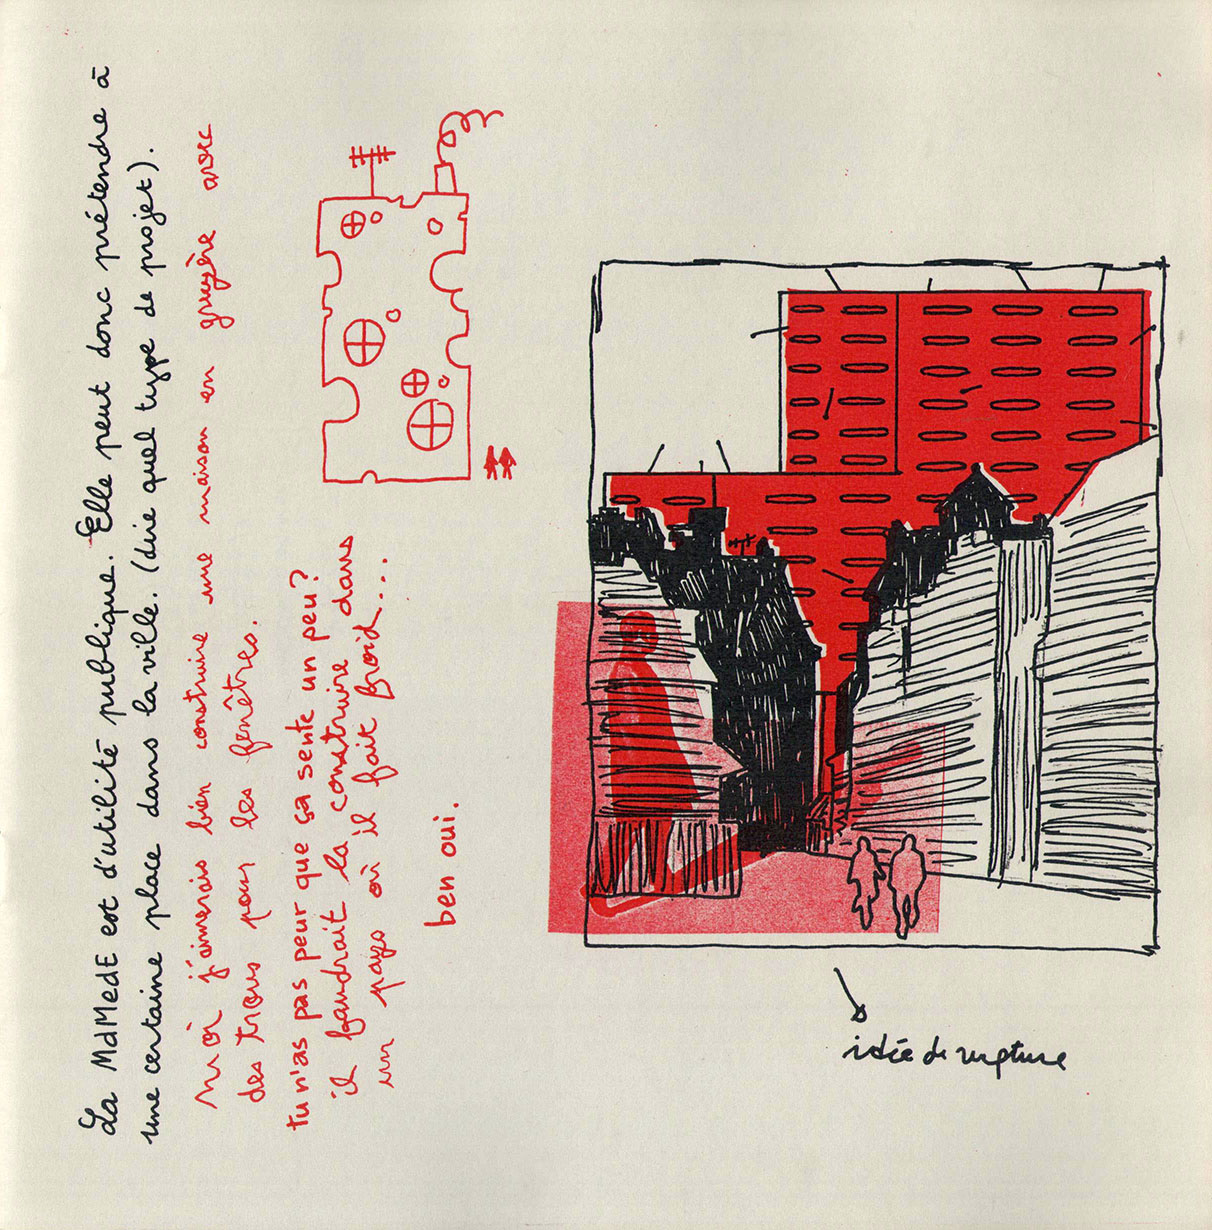 La MdMedE est d'utilité publique. Elle peut donc prétendre à
une certaine place dans la ville. (dire quel type de projet).
moi j'aimerais bien construire une maison en gruyère avec
des trous pour les fenêtres.
tu n'as pas peur que ça sente un peu?
il faudrait la construire dans
un pays où il fait froid...
ben oui.
idée de rupture